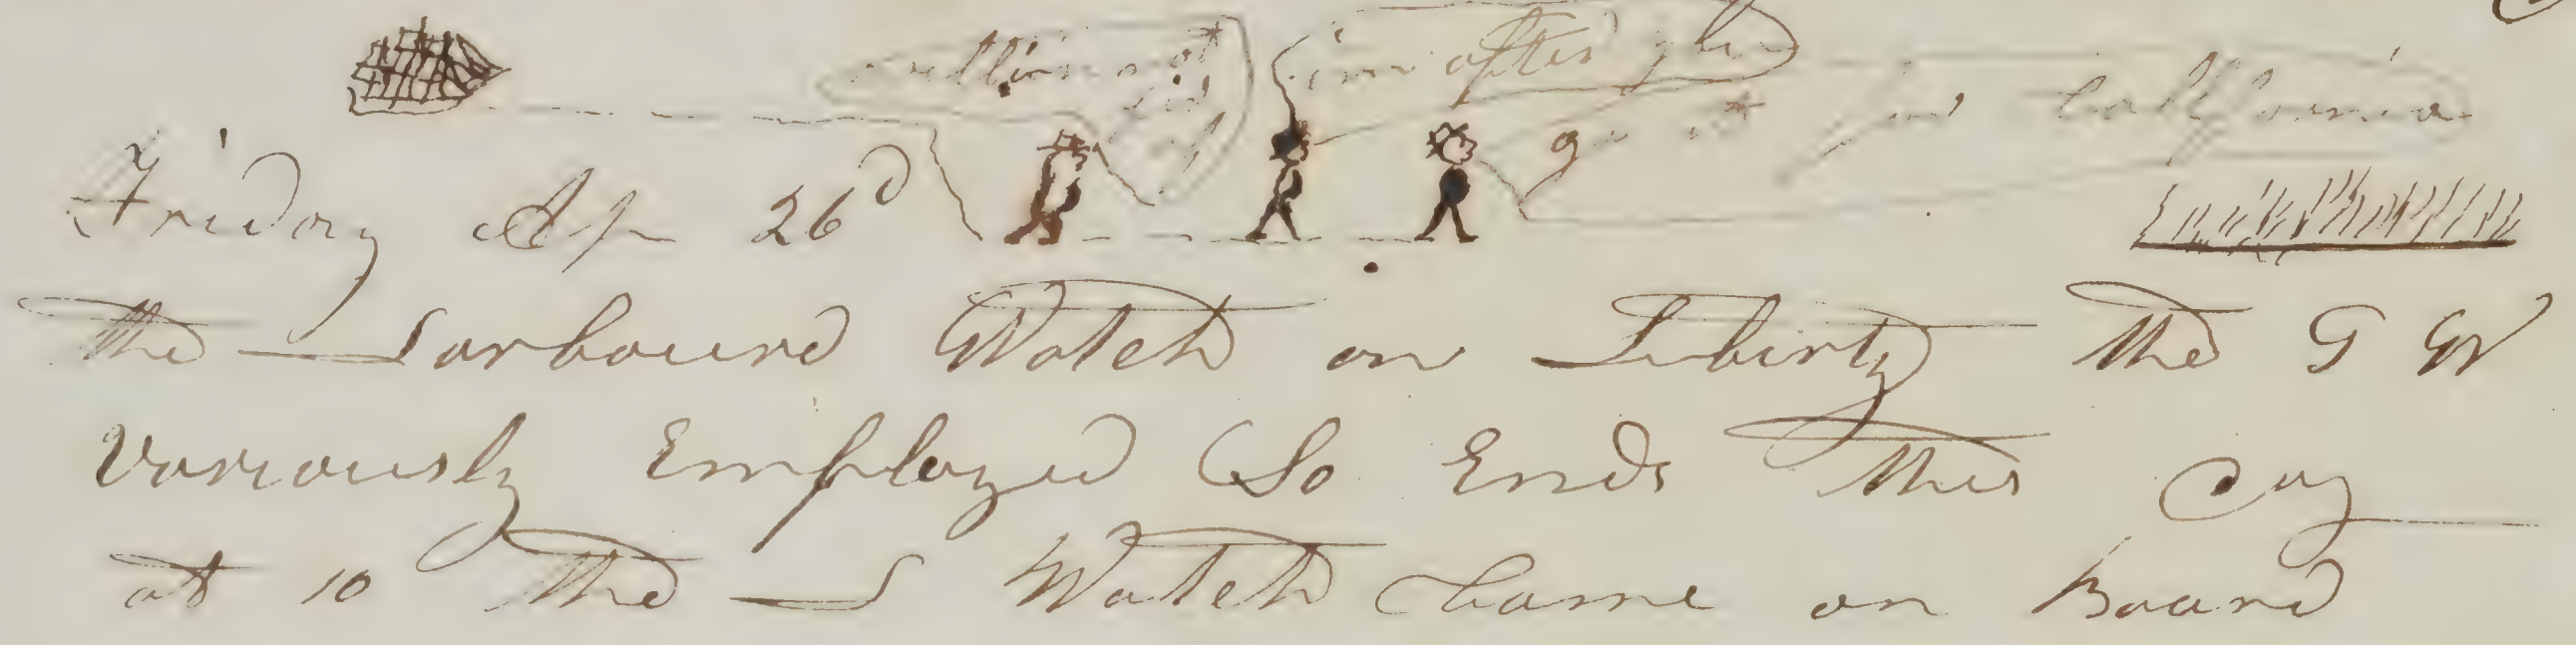 im after you
go it for California
Friday Ap 26d
the Larbourd Watch on Liberty the S W
Variously Employed So Ends this Day
at 10 the L Watch Came on Board